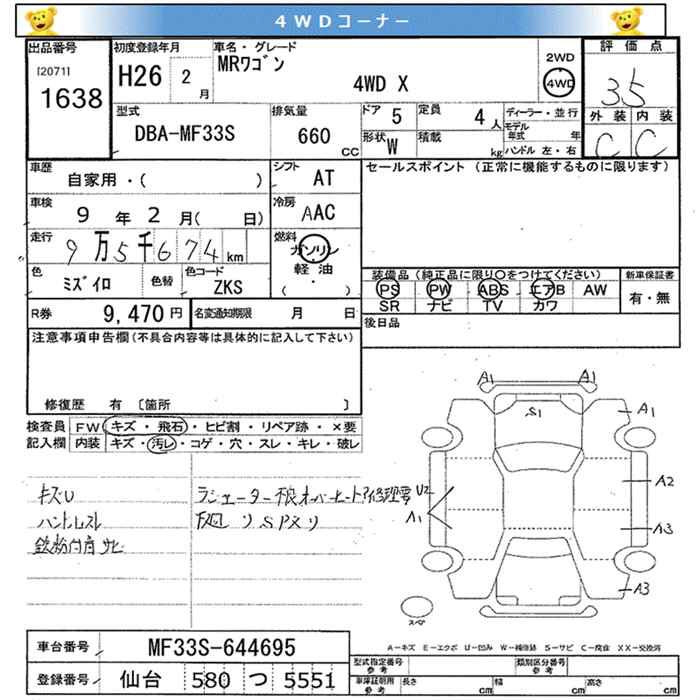 4WDコーナー
出品番号
[2071]
1638
初度登録年月
H26 2月
車名・グレード
MRワゴン
4WD X
2WD
4WD
評価点
3.5
外装 内装
C C
型式
DBA-MF33S
排気量
660 CC
ドア 5
定員 4人
形状 W
積載 kg
ディーラー・並行
モデル年式 年
ハンドル 左・右
車歴
自家用・( )
シフト
AT
セールスポイント (正常に機能するものに限ります)
車検
9年 2月( 日)
冷房
AAC
走行
9万5千674km
燃料
ガソリン
軽油
( )
色
ミズイロ
色替
色コード
ZKS
装備品 (純正品に限り○をつけてください)
PS PW ABS エアB AW
SR ナビ TV カワ
新車保証書
有・無
R券 9,470円
名変通知期限 月 日
後日品
注意事項申告欄(不具合内容等は具体的に記入して下さい)
修復歴 有 [箇所 ]
検査員記入欄
FW キズ・飛石・ヒビ割・リペア跡・×要
内装 キズ・汚レ・コゲ・穴・スレ・キレ・破レ
キズU
鉄粉付着 サビ
A1 A1
S1
A1
A2
U2
A1
A3
A3
スペア
A-キズ E-エクボ U-凹み W-補修跡 S-サビ C-腐食 XX-交換済
車台番号 MF33S-644695
登録番号 仙台 580 つ 5551
型式指定番号 参考
類別区分番号 参考
車庫証明用 参考
長さ cm
幅 cm
高さ cm